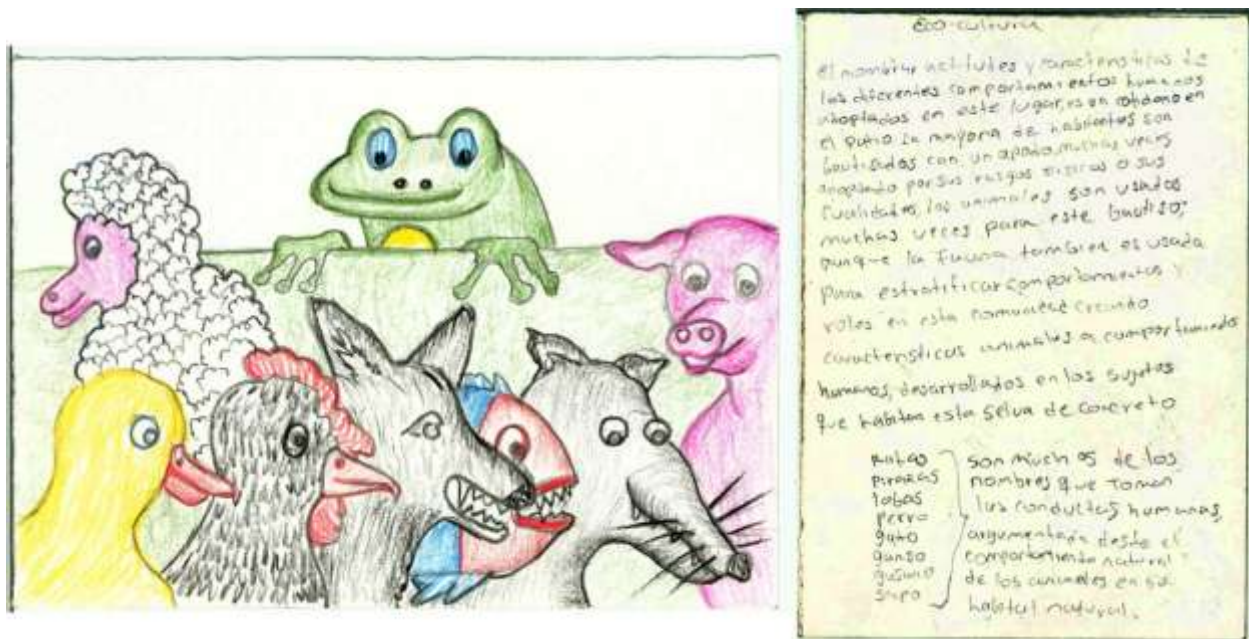 Eco-cultura
el nombrar actitudes y caracteristicas de
los diferentes comportamientos humanos
adoptados en este lugar, es un en
el patio la mayoria de habitantes son
bautisados con un apodo, muchas veces
adoptado por sus rasgos fisicos o sus
cualidades, los animales son usados
muchas veces para este bautiso;
aunque la fauna tambien es usada
para estratificar comportamientos y
roles en esta comunidad creando
caracteristicas animales a comportamientos
humanos, desarrollados en los sujetos
que habitan esta selva de concreto
ratas
pirañas
lobas
perro
gato
ganso
gusano
sapo
son muchos de los
nombres que toman
las conductas humanas,
desde el
comportamiento natural
de los animales en su
habitat natural.